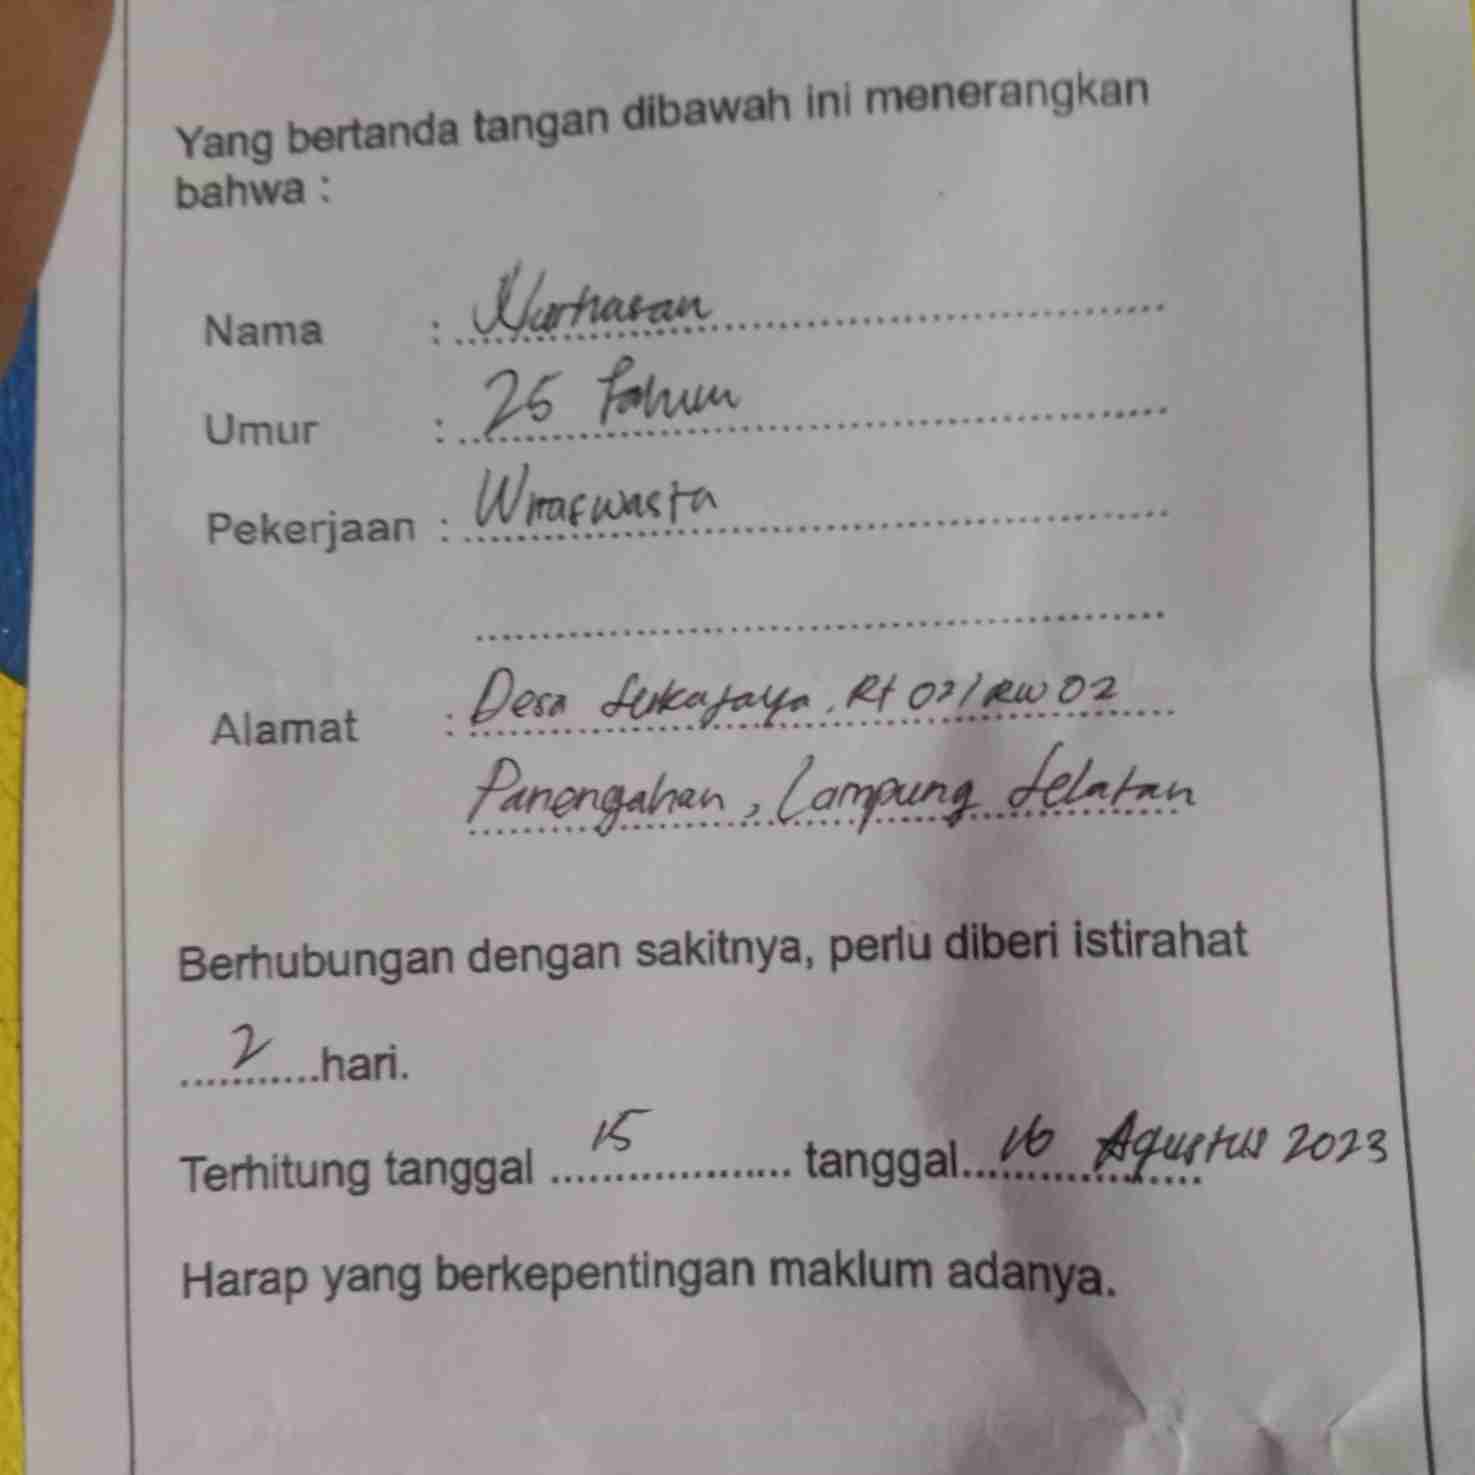 Yang bertanda tangan dibawah ini menerangkan
bahwa :
Nama : Nurhasan
Umur : 25 Tahun
Pekerjaan : Wiraswasta
Alamat : Desa Sukajaya. Rt 02/RW 02
Panengahan, Lampung Selatan
Berhubungan dengan sakitnya, perlu diberi istirahat
2 hari.
Terhitung tanggal 15 tanggal 16 Agustus 2023
Harap yang berkepentingan maklum adanya.